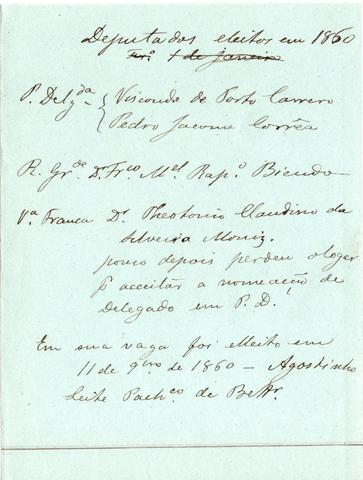 Deputados eleitos em 1860
1 de Janeiro
P. Delgda { Visconde de Porto Carrero
Pedro Jacome Corrêa
R. Grde Dr. Frco Mel Rapo Bicudo
Va Franca Dr. Theotonio Claudino da
Silveira Moniz.
pouco depois perdeu o logar
p acceitar a nomeação de
Delegado em P. D.
Em sua vaga foi elleito em
11 de 9bro de 1860 - Agostinho
Leite Pachco de